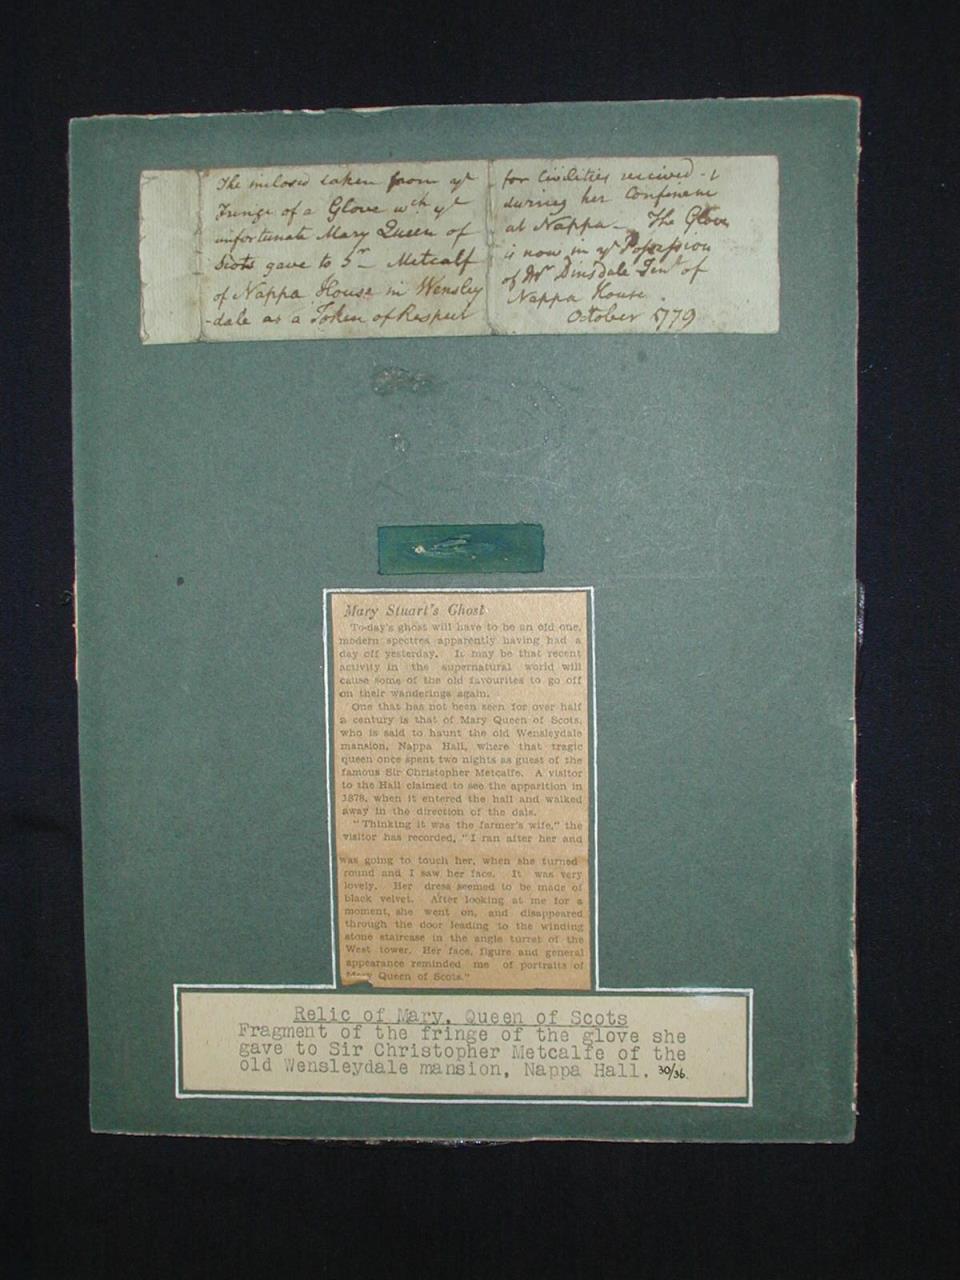 The inclosed taken from ye
Fringe of a Glove wch ye
unfortunate Mary Queen of
Scots gave to Sr - Metcalf
of Nappa House in Wensley
-dale as a Token of Respect
for Civilities recieved
during her Confinem
at Nappa - The Glove
is now in ye Possession
of Mr Dinsdale Tent of
Nappa House.
October 1779
Mary Stuart's Ghost
To-day's ghost will have to be an old one,
modern spectres apparently having had a
day off yesterday. It may be that recent
activity in the supernatural world will
cause some of the old favourites to go off
on their wanderings again.
One that has not been seen for over half
a century is that of Mary Queen of Scots,
who is said to haunt the old Wensleydale
mansion, Nappa Hall, where that tragic
queen once spent two nights as guest of the
famous Sir Christopher Metcalfe. A visitor
to the Hall claimed to see the apparition in
1878, when it entered the hall and walked
away in the direction of the dais.
"Thinking it was the farmer's wife," the
visitor has recorded, "I ran after her and
was going to touch her, when she turned
round and I saw her face. It was very
lovely. Her dress seemed to be made of
black velvet. After looking at me for a
moment, she went on, and disappeared
through the door leading to the winding
stone staircase in the angle turret of the
West tower. Her face, figure and general
appearance reminded me of portraits of
Mary Queen of Scots."
Relic of Mary, Queen of Scots
Fragment of the fringe of the glove she
gave to Sir Christopher Metcalfe of the
old Wensleydale mansion, Nappa Hall. 30/36.